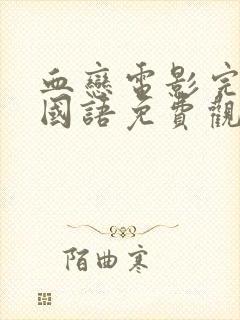 血戀電影完
國語免費觀
陌曲寒